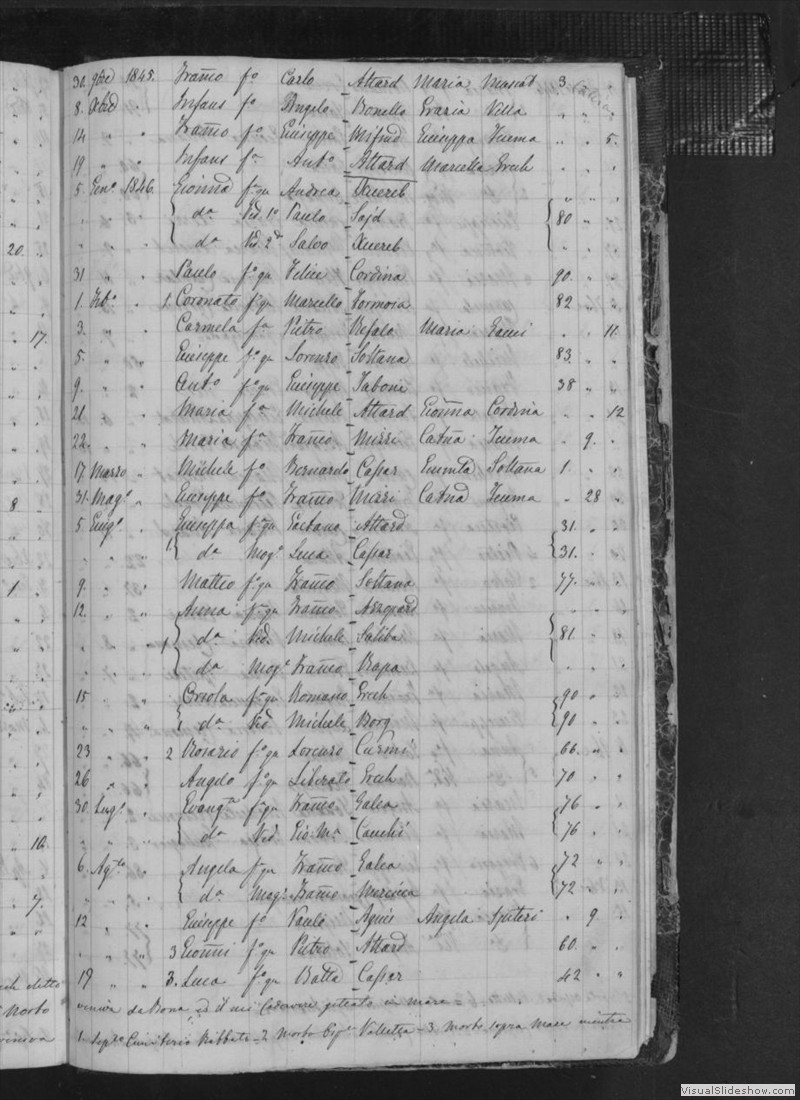 31. 9bre 1845. Franco fo Carlo Attard Maria Muscat 3
8. Xbre Infans fo Angelo Bonello Grazia Villa
14 Franco fo Giuseppe Mifsud Giuseppa Tuema 5.
19 Infans fo Anto Attard Mariella Grech
5 Geno 1846. Andrea Xuereb
da Ved. 1o Paulo Sajd 80
da Ved. 2o Salvo Xuereb
31 Paulo fo qu Felice Cordina 90.
1. Febo 1. Coronato fo qu Marcello Formosa 82
3. Carmela fa Pietro Refalo Maria Gauci 11
17.
20.
5. Giuseppe fo qu Lorenzo Soltana 83.
9. Anto fo qu Giuseppe Tabone 38
21 Maria fa Michele Attard Gionna Cordina 12
22. Maria fa Franco Mizzi Catna Tuema 9.
17 Marzo Michele fo Bernardo Cassar Soltana 1
31. Mago Giuseppe fo Franco Mizzi Catna Tuema 28
8
5 Giugo Giuseppa fa qu Gaetano Attard 31.
1 da Moge Luca Cassar 31.
9. Matteo fo qu Franco Soltana 77.
1
12. Anna fa qu Franco Azzopard
1 da Ved. Michele Saliba 81
da Moge Franco Rapa
15 Orsola fa qu Romano Grech 90
da Ved Michele Borg 90
23 2 Rosario fo qu Lorenzo Curmi 66.
26 Angelo fo qu Liberato Grech 70
30. Lugo Evangta fa qu Franco Galea 76
10. da Ved Gio Ma Cauchi 76
6. Agto Angela fa qu Franco Galea 72
7. da Moge Franco Mercieca 72
12 Giuseppe fo Paulo Agius Angela Spiteri 9.
3 Gionni fo qu Pietro Attard 60.
19 3. Luca fo qu Batta Cassar 42
venina da Bona, ed il cadavere gettato in mare =
1 Cimiterio Rabbato = 2 Morto Valletta = 3 morto sopra mare mentre
detto
Morto
VisualSlideshow.com